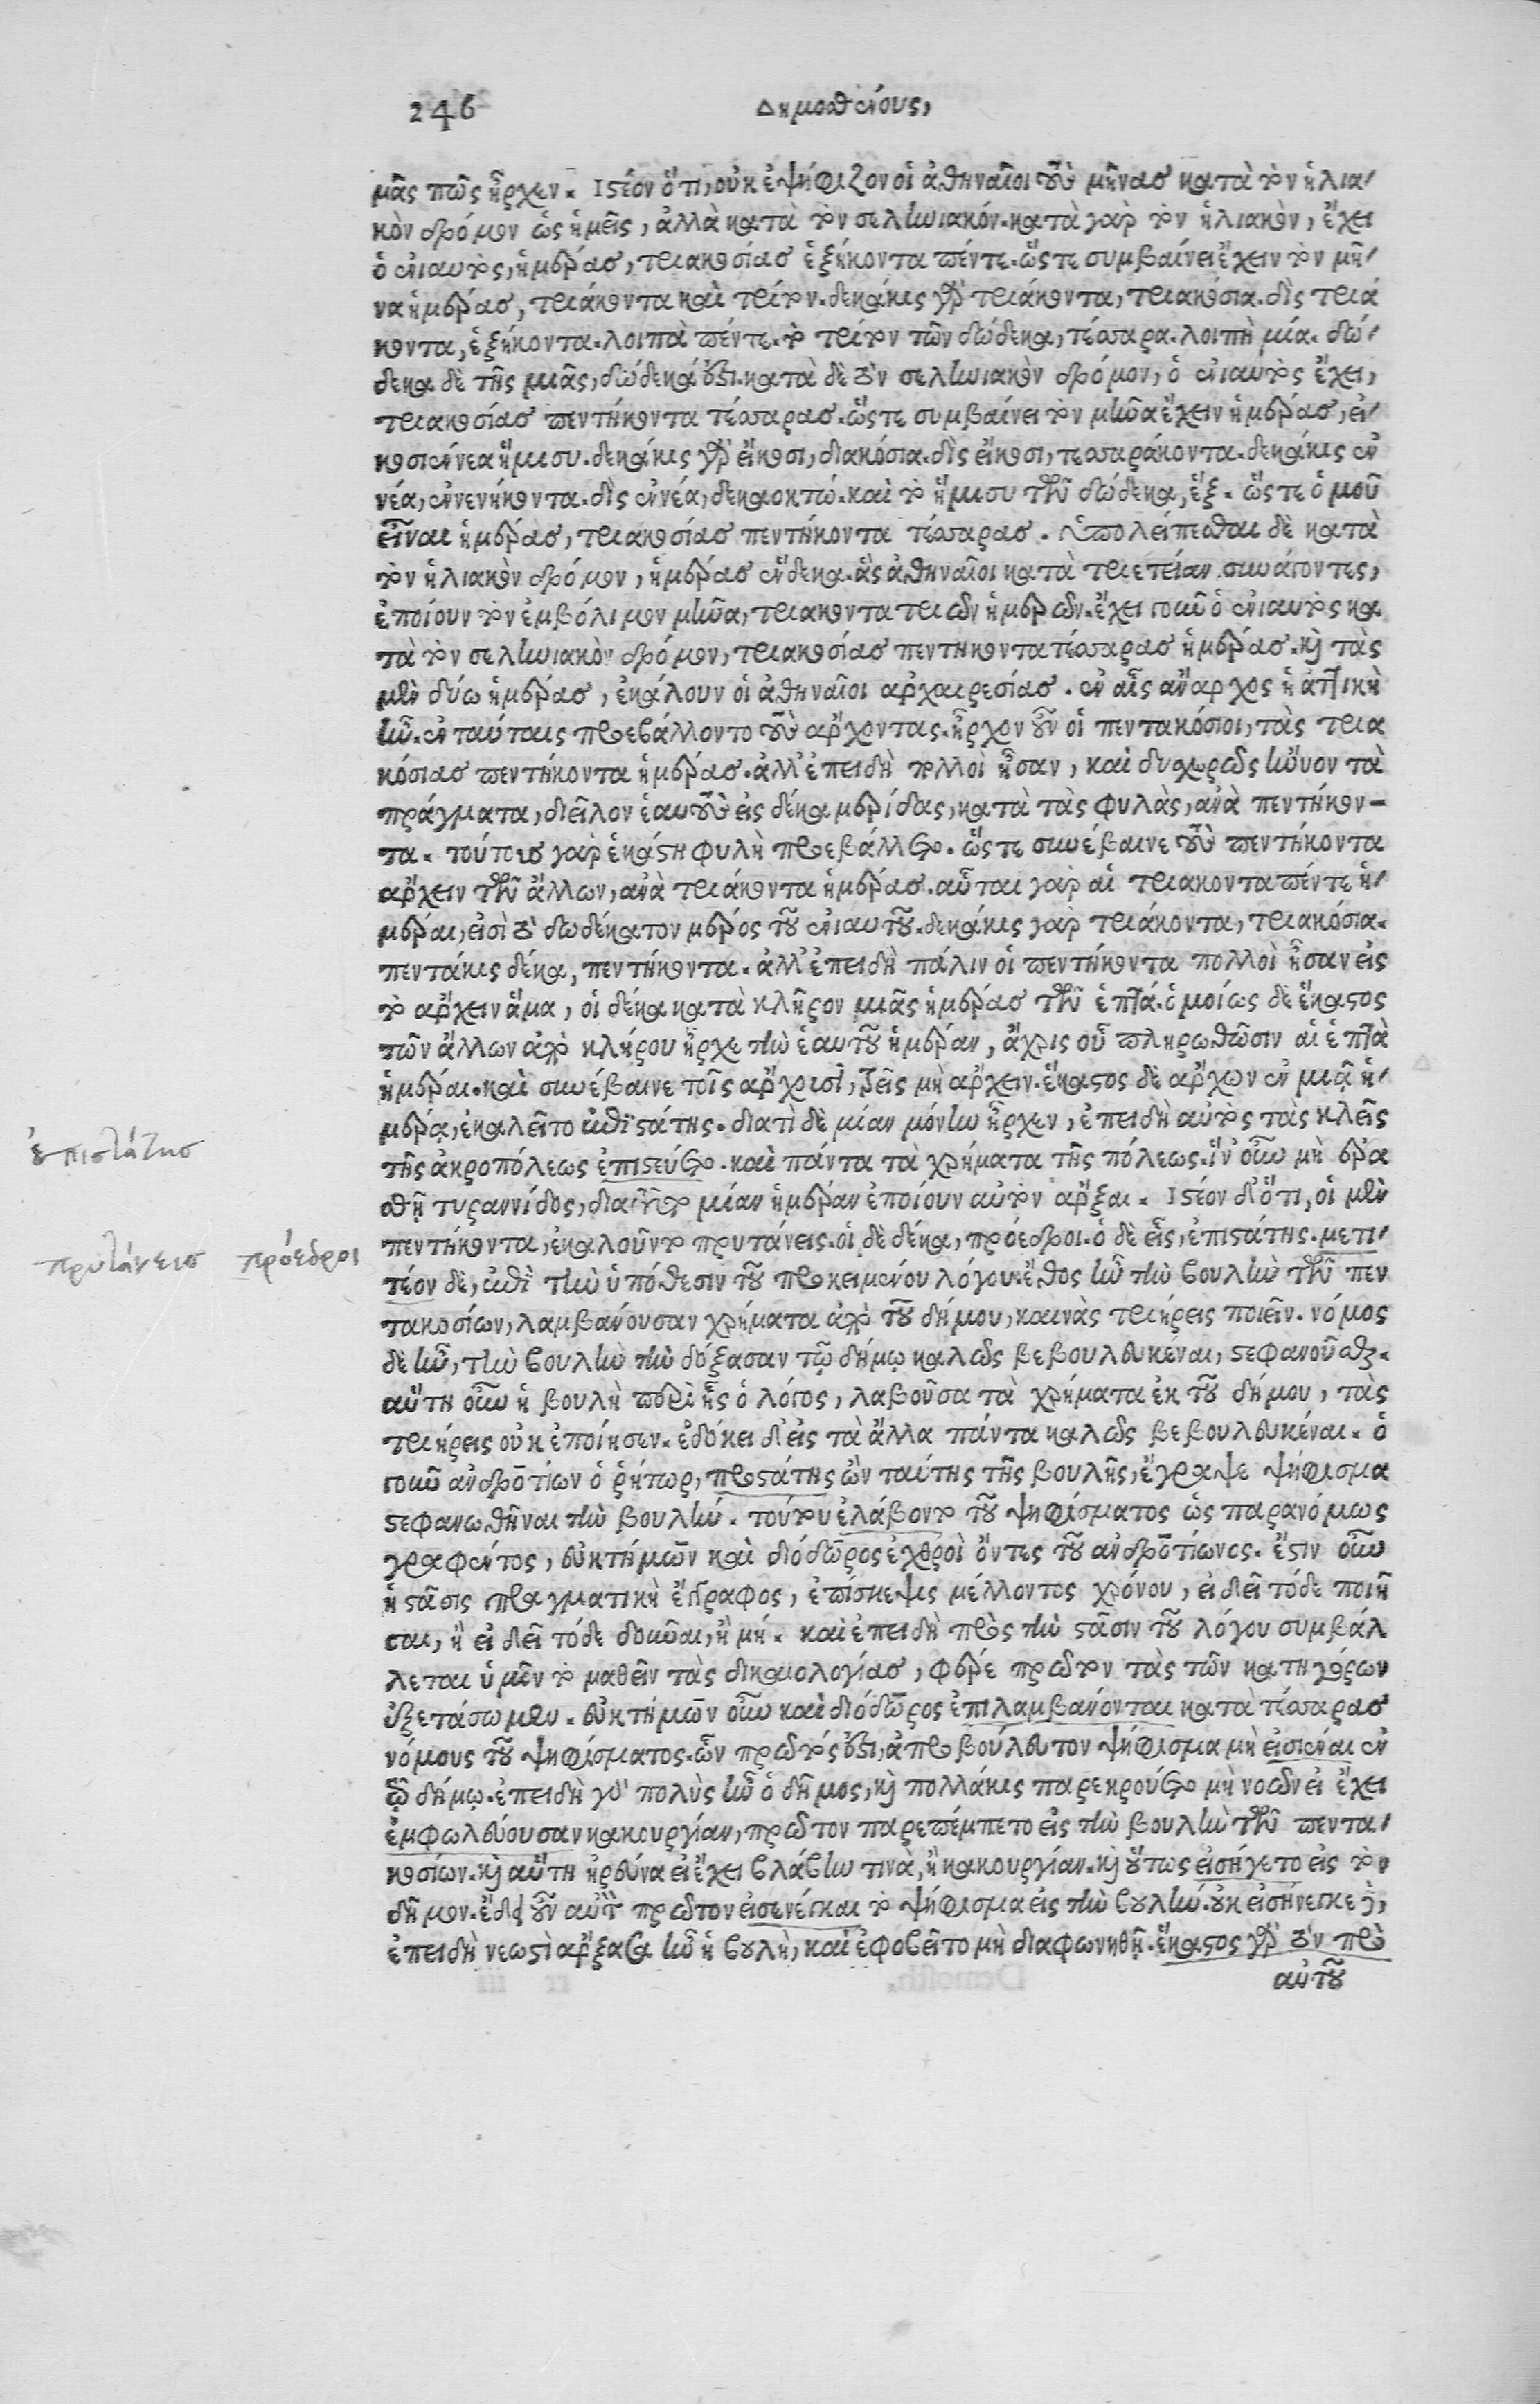 246 Δημοσθένους,
μᾶς πῶς ἦρχεν. Ἰστέον ὅτι, οὐκ ἐψήφιζον οἱ ἀθηναῖοι τοὺς μῆνας κατὰ τὸν ἡλια-
κὸν δρόμον ὡς ἡμεῖς, ἀλλὰ κατὰ τὸν σεληνιακόν. κατὰ γὰρ τὸν ἡλιακὸν, ἔχει
ὁ ἐνιαυτὸς, ἡμέρας, τριακοσίας ἑξήκοντα πέντε. ὥστε συμβαίνει ἔχειν τὸν μῆ-
να ἡμέρας, τριάκοντα καὶ τρίτον. δεκάκις γὰρ τριάκοντα, τριακόσια. δὶς τριά
κοντα, ἑξήκοντα. λοιπὰ πέντε. τὸ τρίτον τῶν δώδεκα, τέσσαρα. λοιπὴ μία. δώ-
δεκα δὲ τῆς μιᾶς, δώδεκά ἐστι. κατὰ δὲ τὸν σεληνιακὸν δρόμον, ὁ ἐνιαυτὸς ἔχει,
τριακοσίας πεντήκοντα τέσσαρας. ὥστε συμβαίνει τὸν μῆνα ἔχειν ἡμέρας, εἰ-
κοσιεννέα ἥμισυ. δεκάκις γὰρ εἴκοσι, διακόσια. δὶς εἴκοσι, τεσσαράκοντα. δεκάκις ἐν
νέα, ἐννενήκοντα. δὶς ἐννέα, δεκαοκτώ. καὶ τὸ ἥμισυ τῶν δώδεκα, ἕξ. ὥστε ὁμοῦ
εἶναι ἡμέρας, τριακοσίας πεντήκοντα τέσσαρας. ὑπολείπεσθαι δὲ κατὰ
τὸν ἡλιακὸν δρόμον, ἡμέρας ἕνδεκα. ἃς ἀθηναῖοι κατὰ τριετείαν συνάγοντες,
ἐποίουν τὸν ἐμβόλιμον μῆνα, τριακοντατριῶν ἡμερῶν. ἔχει γοῦν ὁ ἐνιαυτὸς κα
τὰ τὸν σεληνιακὸν δρόμον, τριακοσίας πεντηκοντατέσσαρας ἡμέρας. καὶ τὰς
μὲν δύω ἡμέρας, ἐκάλουν οἱ ἀθηναῖοι ἀρχαιρεσίας. ἐν αἷς ἄναρχος ἡ ἀττικὴ
ἦν. ἐν ταύταις προεβάλλοντο τοὺς ἄρχοντας. ἦρχον οὖν οἱ πεντακόσιοι, τὰς τρια
κόσιας πεντήκοντα ἡμέρας. ἀλλ' ἐπειδὴ πολλοὶ ἦσαν, καὶ δυσχερῶς ἤνυον τὰ
πράγματα, διεῖλον ἑαυτοὺς εἰς δέκα μερίδας, κατὰ τὰς φυλὰς, ἀνὰ πεντήκον-
τα. τούτοις γὰρ ἑκάστη φυλὴ προεβάλλετο. ὥστε συνέβαινε τοὺς πεντήκοντα
ἄρχειν τῶν ἄλλων, ἀνὰ τριάκοντα ἡμέρας. αὗται γὰρ αἱ τριακονταπέντε ἡ-
μέραι, εἰσὶ τὸ δωδέκατον μέρος τοῦ ἐνιαυτοῦ. δεκάκις γὰρ τριάκοντα, τριακόσια.
πεντάκις δέκα, πεντήκοντα. ἀλλ' ἐπειδὴ πάλιν οἱ πεντήκοντα πολλοὶ ἦσαν εἰς
τὸ ἄρχειν ἅμα, οἱ δέκα κατὰ κλῆρον μιᾶς ἡμέρας τῶν ἑπτά. ὁμοίως δὲ ἕκαστος
τῶν ἄλλων ἀπὸ κλήρου ἦρχε τὴν ἑαυτοῦ ἡμέραν, ἄχρις οὗ πληρωθῶσιν αἱ ἑπτὰ
ἡμέραι. καὶ συνέβαινε τοῖς ἄρχουσι, τρεῖς μὴ ἄρχειν. ἕκαστος δὲ ἄρχων ἐν μιᾷ ἡ-
μέρᾳ, ἐκαλεῖτο ἐπιστάτης. διατὶ δὲ μίαν μόνην ἦρχεν, ἐπειδὴ αὐτὸς τὰς κλεῖς
τῆς ἀκροπόλεως ἐπιστεύετο. καὶ πάντα τὰ χρήματα τῆς πόλεως. ἵν' οὖν μὴ ἐρα
σθῇ τυραννίδος, διατοῦτο μίαν ἡμέραν ἐποίουν αὐτὸν ἄρξαι. Ἰστέον δ' ὅτι, οἱ μὲν
πεντήκοντα, ἐκαλοῦντο πρυτάνεις. οἱ δὲ δέκα, πρόεδροι. ὁ δὲ εἷς, ἐπιστάτης. μετι-
τέον δὲ, ἐπὶ τὴν ὑπόθεσιν τοῦ προκειμένου λόγου. ἔθος ἦν τὴν βουλὴν τῶν πεν
τακοσίων, λαμβάνουσαν χρήματα ἀπὸ τοῦ δήμου, καινὰς τριήρεις ποιεῖν. νόμος
δὲ ἦν, τὴν βουλὴν τὴν δόξασαν τῷ δήμῳ καλῶς βεβουλευκέναι, στεφανοῦσθαι.
αὕτη οὖν ἡ βουλὴ περὶ ἧς ὁ λόγος, λαβοῦσα τὰ χρήματα ἐκ τοῦ δήμου, τὰς
τριήρεις οὐκ ἐποίησεν. ἐδόκει δ' εἰς τὰ ἄλλα πάντα καλῶς βεβουλευκέναι. ὁ
γοῦν ἀνδροτίων ὁ ῥήτωρ, προστάτης ὢν ταύτης τῆς βουλῆς, ἔγραψε ψήφισμα
στεφανωθῆναι τὴν βουλήν. τούτου ἐλάβοντο τοῦ ψηφίσματος ὡς παρανόμως
γραφέντος, εὐκτήμων καὶ διόδωρος ἐχθροὶ ὄντες τοῦ ἀνδροτίωνος. ἔστιν οὖν
ἡ στάσις πραγματικὴ ἔγγραφος, ἐπίσκεψις μέλλοντος χρόνου, εἰ δεῖ τόδε ποιῆ
σαι, ἢ εἰ δεῖ τόδε δοκῦαι, ἢ μή. καὶ ἐπειδὴ πρὸς τὴν στάσιν τοῦ λόγου συμβάλ
λεται ὑμῖν τὸ μαθεῖν τὰς δικαιολογίας, φέρε πρῶτον τὰς τῶν κατηγόρων
ἐξετάσωμεν. εὐκτήμων οὖν καὶ διόδωρος ἐπιλαμβάνονται κατὰ τέσσαρας
νόμους τοῦ ψηφίσματος. ὧν πρῶτός ἐστι, ἀπροβούλευτον ψήφισμα μὴ εἰσιέναι ἐν
τῷ δήμῳ. ἐπειδὴ γὰρ πολὺς ἦν ὁ δῆμος, καὶ πολλάκις παρεκρούετο μὴ νοῶν εἰ ἔχει
ἐμφωλεύουσαν κακουργίαν, πρῶτον παρεπέμπετο εἰς τὴν βουλὴν τῶν πεντα-
κοσίων. καὶ αὕτη ἠρεύνα εἰ ἔχει βλάβην τινὰ, ἢ κακουργίαν. καὶ οὕτως εἰσήγετο εἰς τὸν
δῆμον. ἔδει οὖν αὐτὸν πρῶτον εἰσενέγκαι τὸ ψήφισμα εἰς τὴν βουλήν. οὐκ εἰσήνεγκε δὲ,
ἐπειδὴ νεωστὶ ἄρξασα ἦν ἡ βουλὴ, καὶ ἐφοβεῖτο μὴ διαφωνηθῇ. ἕκαστος γὰρ τὸν πρὸ
αὐτοῦ
ἐπιστάτης
πρυτάνεις πρόεδροι